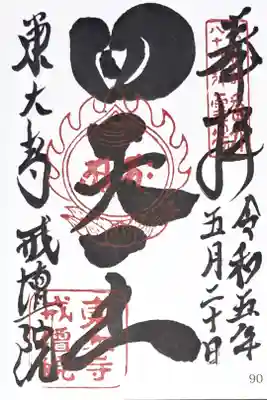 奉拝
令和五年
五月二十日
四天王
東大寺
戒壇院
東大寺
戒壇院
90